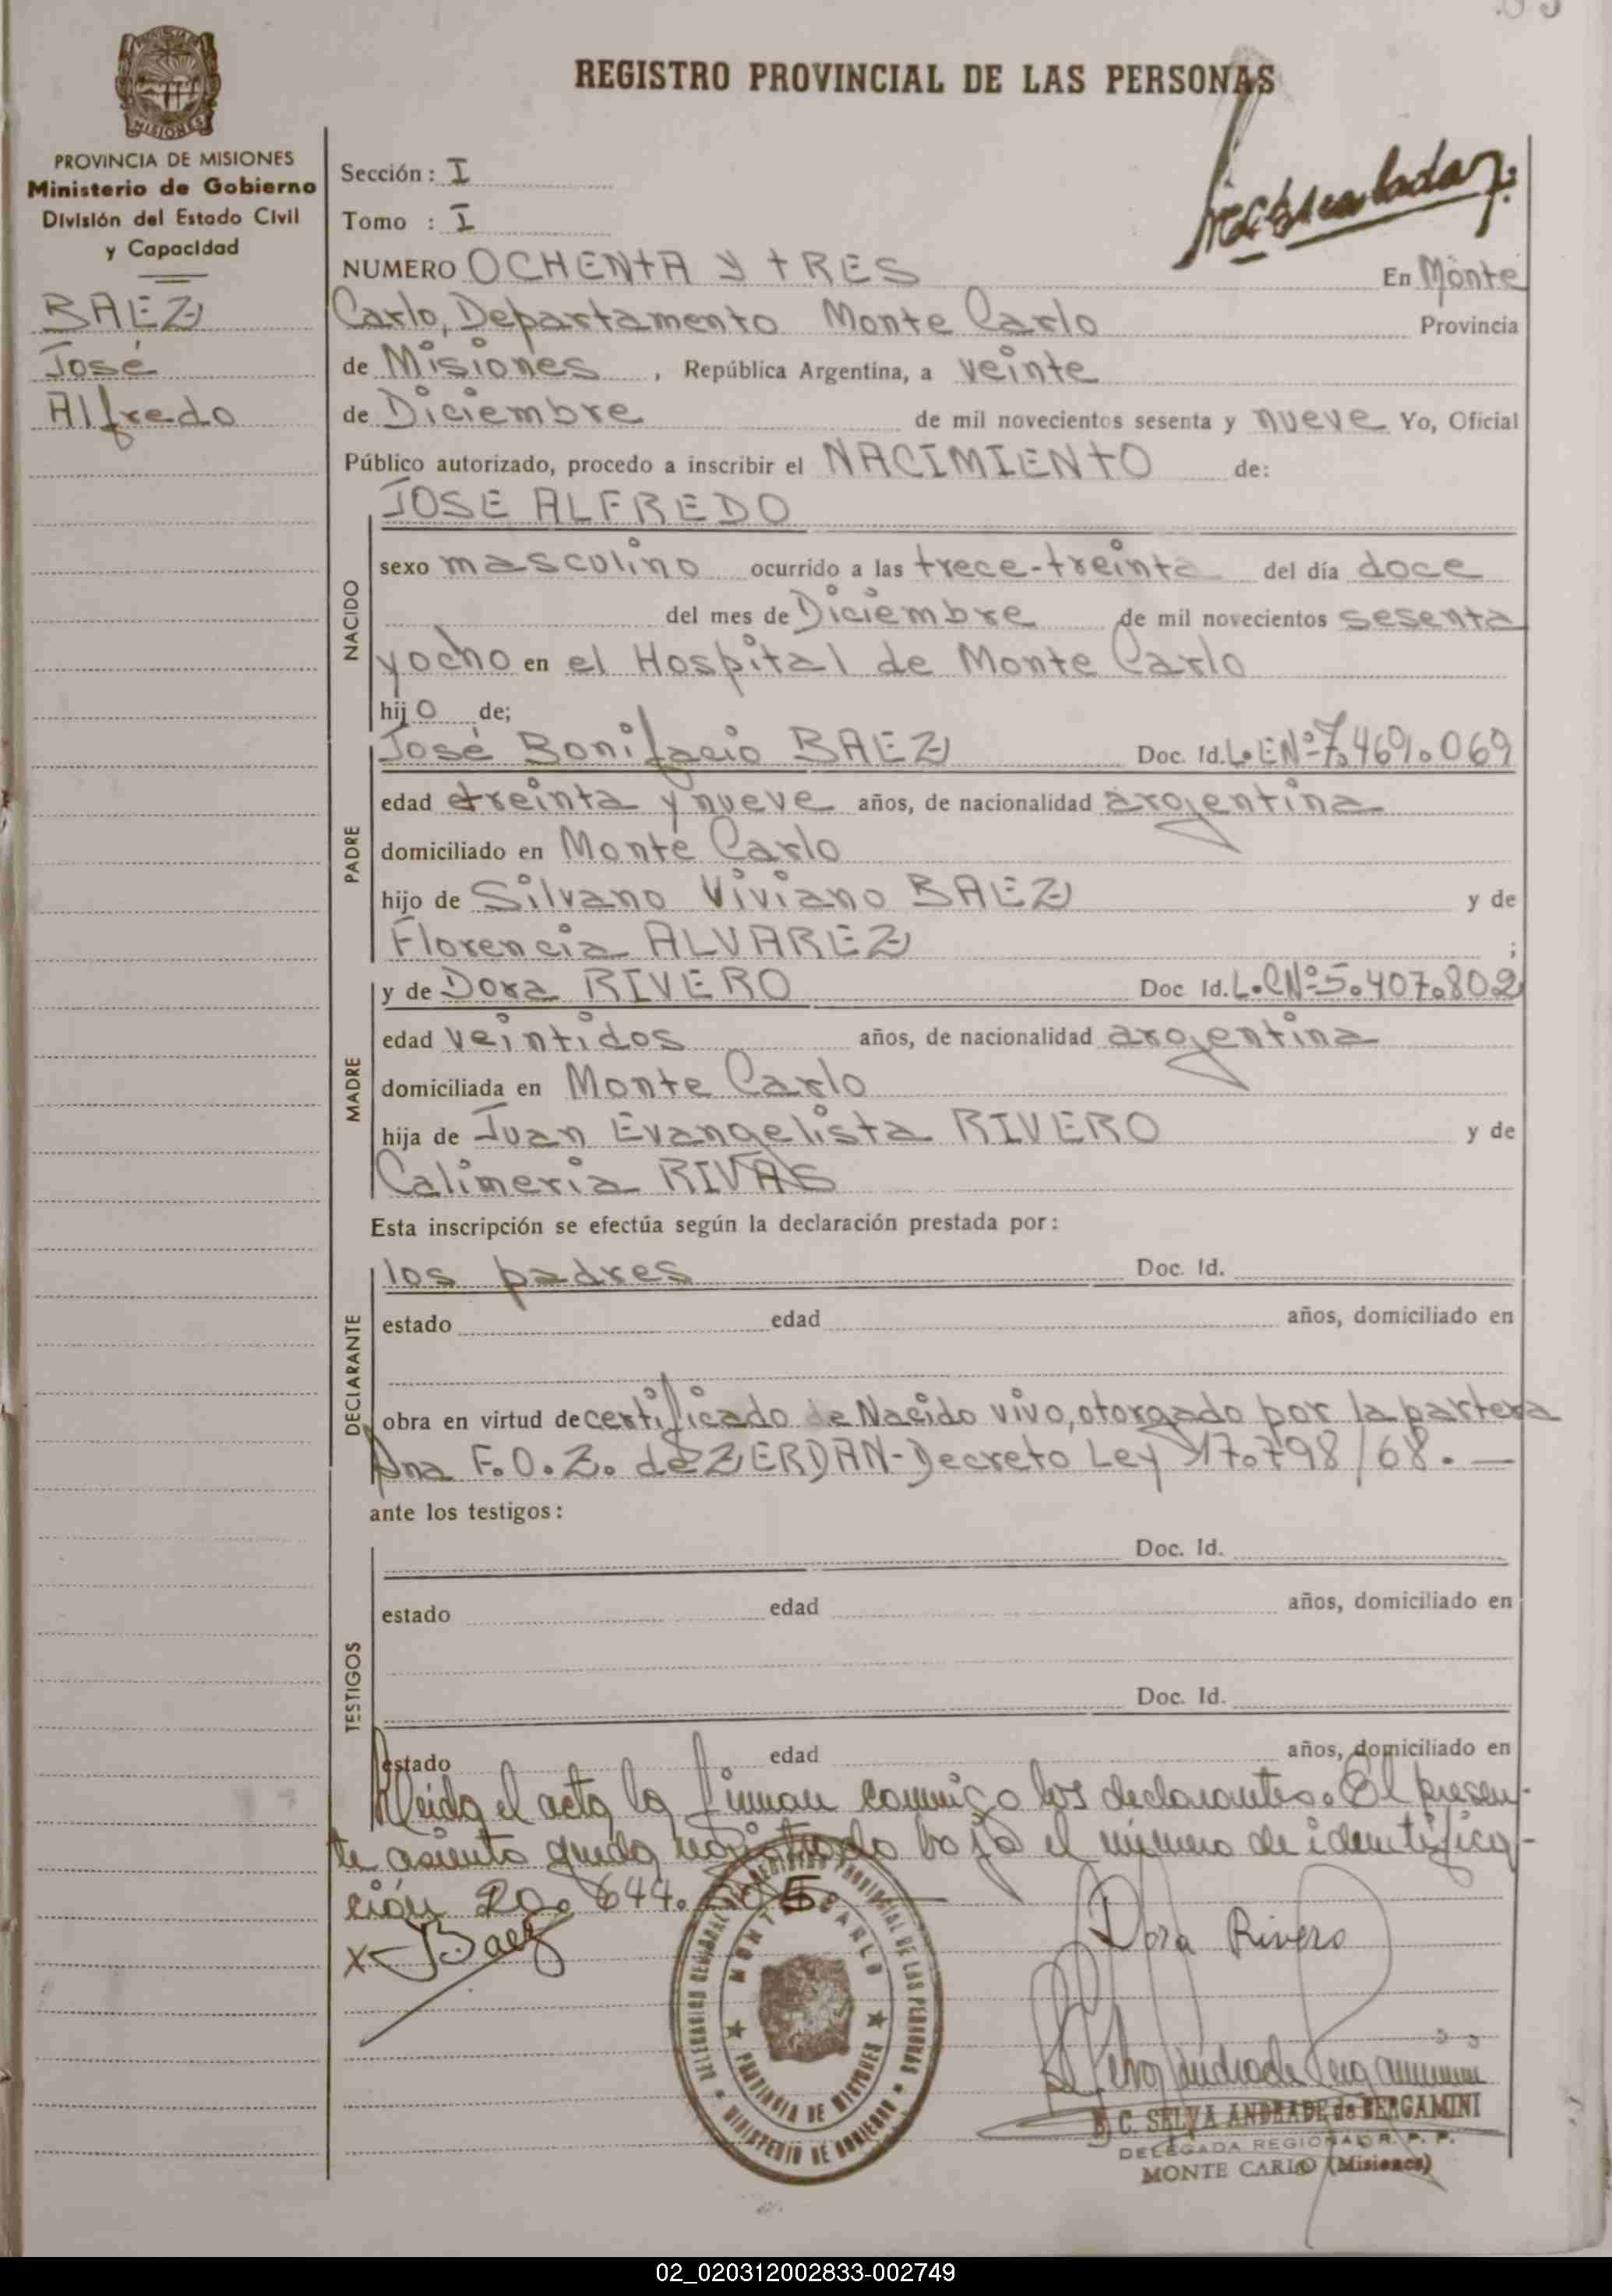 REGISTRO PROVINCIAL DE LAS PERSONAS
MISIONES
PROVINCIA DE MISIONES
Ministerio de Gobierno
División del Estado Civil
y Capacidad
BAEZ
José
Alfredo
Sección: I
Tomo : I
NUMERO OCHENTA Y TRES En Monte
Carlo, Departamento Monte Carlo Provincia
de Misiones, República Argentina, a veinte
de Diciembre de mil novecientos sesenta y nueve Yo, Oficial
Público autorizado, procedo a inscribir el NACIMIENTO de:
NACIDO
JOSE ALFREDO
sexo masculino ocurrido a las trece-treinta del día doce
del mes de Diciembre de mil novecientos sesenta
y ocho en el Hospital de Monte Carlo
hijo de;
PADRE
José Bonifacio BAEZ Doc. Id. L.E Nº 7.469.069
edad treinta y nueve años, de nacionalidad argentina
domiciliado en Monte Carlo
hijo de Silvano Viviano BAEZ y de
Florencia ALVAREZ ;
MADRE
y de Dora RIVERO Doc Id. L.C Nº 5.407.802
edad veintidos años, de nacionalidad argentina
domiciliada en Monte Carlo
hija de Juan Evangelista RIVERO y de
Calimeria RIVAS
Esta inscripción se efectúa según la declaración prestada por:
DECLARANTE
los padres Doc. Id.
estado edad años, domiciliado en
obra en virtud de certificado de Nacido vivo, otorgado por la partera
Ana F.O.Z. de ZERDAN-Decreto Ley 17.798/68.—
ante los testigos:
TESTIGOS
Doc. Id.
estado edad años, domiciliado en
Doc. Id.
estado edad años, domiciliado en
leida el acta la firman conmigo los declarantes. El presen-
te asiento queda registrado bajo el número de identifica-
ción 20.644.
x Baez
Dora Rivero
DELEGACION REGISTRO PROVINCIAL DE LAS PERSONAS
MINISTERIO DE GOBIERNO
MONTE CARLO
PROVINCIA DE MISIONES
Selva Andrade Bergamini
C. SELVA ANDRADE de BERGAMINI
DELEGADA REGIONAL R. P. P.
MONTE CARLO (Misiones)
02_020312002833-002749